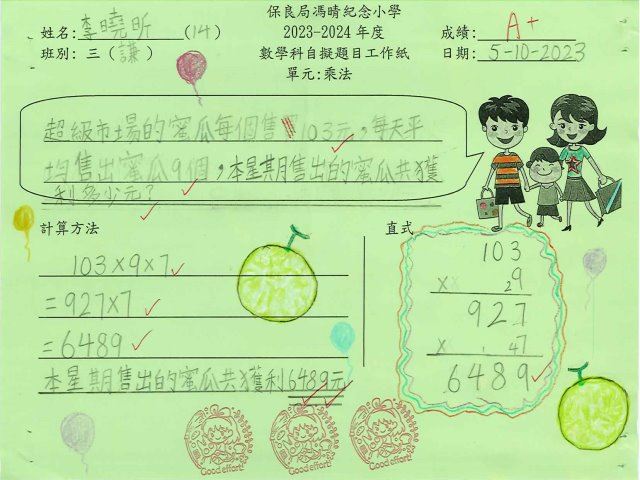 保良局馮晴紀念小學
姓名: 李曉昕 (14)
2023-2024年度
成績: A+
班別: 三 (謙)
數學科自擬題目工作紙
日期: 5-10-2023
單元:乘法
超級市場的蜜瓜每個售103元，每天平
均售出蜜瓜9個，本星期售出的蜜瓜共獲
利多少元？
計算方法
103×9×7
=927×7
=6489
本星期售出的蜜瓜共獲利6489元
直式
103
× 29
927
× 47
6489
Good effort!
Good effort!
Good effort!